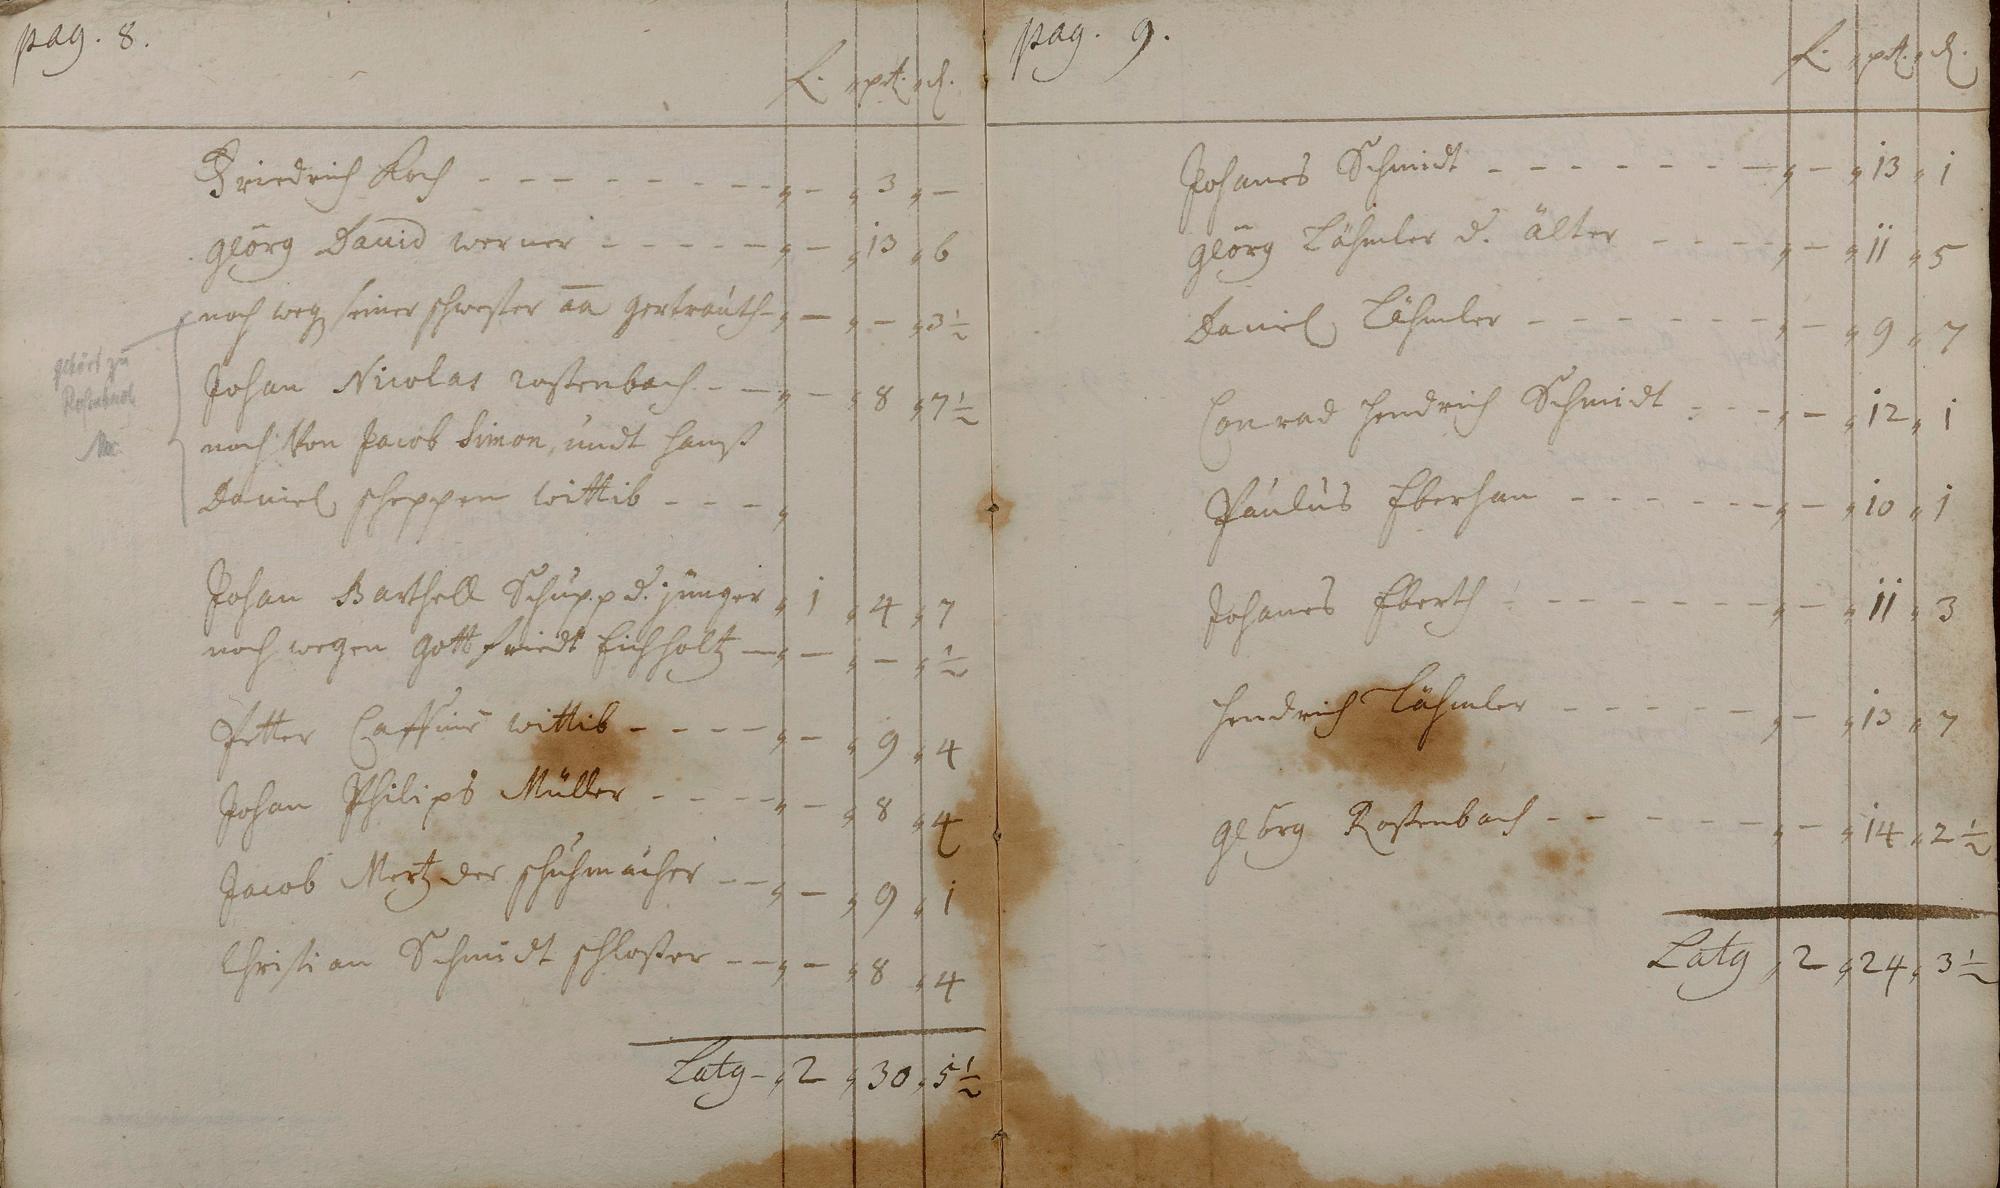 pag. 8.
f. „ pf. „ d.
Friedrich Koch - - - - - - - - „ - „ 3 „ -
Geörg David werner - - - - - „ - „ 13 „ 6
noch weg seiner schwester aa gertrauth - „ - „ - „ 3½
Johan Nicolas rossenbach - - - „ - „ 8 „ 7½
gehört zu
noch Von Jacob Simon, undt hanß
Daniel scheppen wittib - - - „
Johan Barthell Schupp d. jünger „ 1 „ 4 „ 7
noch wegen gottfriedt Eichholtz - „ - „ - „ ½
Petter wittib - - - - „ - „ 9 „ 4
Johan Philips Müller - - - - „ - „ 8 „ 4
Jacob Mertz der schuhmacher - - „ - „ 9 „ 1
Christian Schmidt schlosser - - „ - „ 8 „ 4
Latg - „ 2 „ 30 „ 5½
pag. 9.
f. „ pf. „ d.
Johanes Schmidt - - - - - - - - „ - „ 13 „ 1
Geörg Lähmler d. älter - - - - „ - „ 11 „ 5
Daniel Lähmler - - - - - - - „ - „ 9 „ 7
Conrad Hendrich Schmidt - - - - „ - „ 12 „ 1
Paulus Eberhan - - - - - - - „ - „ 10 „ 1
Johanes Eberth - - - - - - - „ - „ 11 „ 3
Hendrich Lähmler - - - - - - „ - „ 13 „ 7
Geörg Rossenbach - - - - - - „ - „ 14 „ 2½
Latg „ 2 „ 24 „ 3½